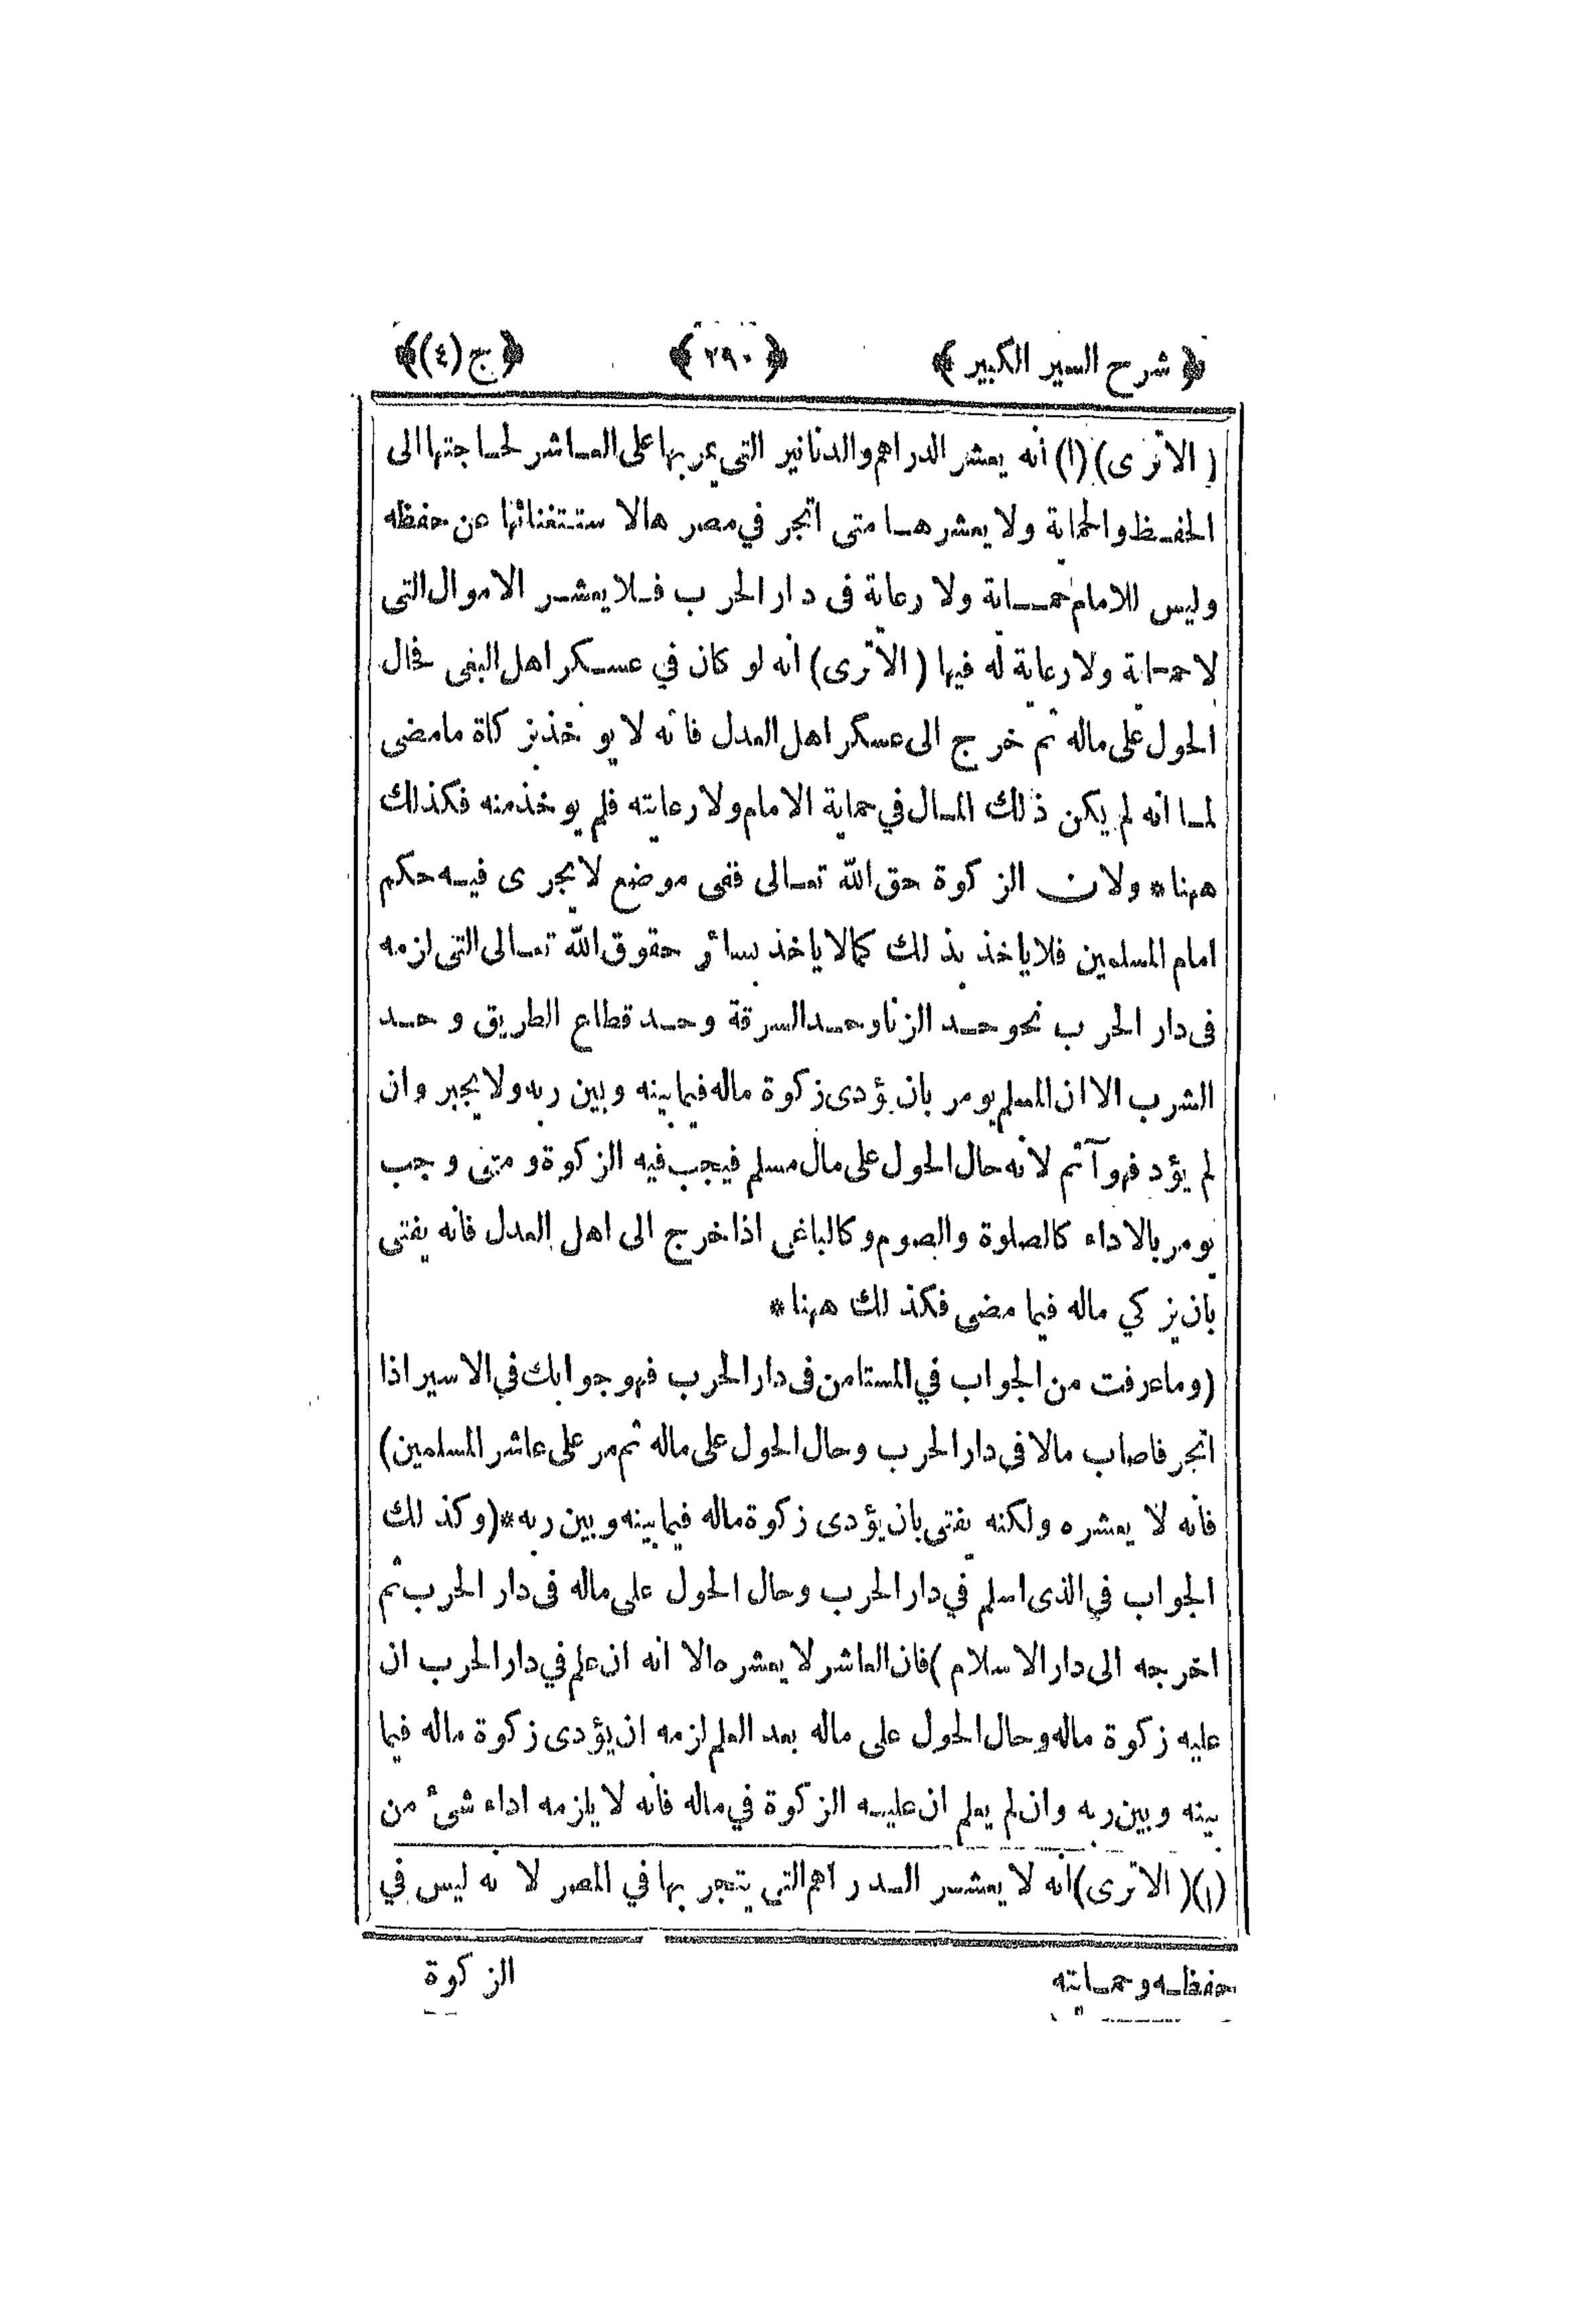 ﴿ شرح السير الكبير ﴾ ﴿ ٢٩٠ ﴾ ﴿ ج (٤) ﴾
( الا ترى ) (١) انه يعشر الدراهم والدنانير التى يمر بها على العاشر لحاجتها الى
الحفظ والحماية ولا يعشرها متى اتجر في مصرها لا ستغنائها عن حفظه
وليس للامام حماية ولا رعاية فى دار الحرب فلا يعشر الاموال التى
لا حماية ولا رعاية له فيها ( الا ترى ) انه لو كان في عسكر اهل البغى فحال
الحول على ماله ثم خرج الى عسكر اهل العدل فانه لا يوخذ بزكاة ما مضى
لما انه لم يكن ذلك المال في حماية الامام ولا رعايته فلم يوخذ منه فكذلك
ههنا * ولان الزكوة حق الله تعالى ففى موضع لا يجرى فيه حكم
امام المسلمين فلا ياخذ بذلك كما لا ياخذ بسائر حقوق الله تعالى التى لزمه
فى دار الحرب نحو حد الزنا وحد السرقة وحد قطاع الطريق وحد
الشرب الا ان المسلم يومر بان يؤدى زكوة ماله فيما بينه وبين ربه ولا يجبر وان
لم يؤد فهو آثم لانه حال الحول على مال مسلم فيجب فيه الزكوة و متى وجب
يومر بالاداء كالصلوة والصوم وكالباغى اذا خرج الى اهل العدل فانه يفتى
بان يزكي ماله فيما مضى فكذلك ههنا *
(وما عرفت من الجواب في المستامن فى دار الحرب فهو جوابك في الاسير اذا
اتجر فاصاب مالا فى دار الحرب وحال الحول على ماله ثم مر على عاشر المسلمين)
فانه لا يعشره ولكنه يفتى بان يؤدى زكوة ماله فيما بينه وبين ربه * (وكذلك
الجواب في الذى اسلم في دار الحرب وحال الحول على ماله فى دار الحرب ثم
اخرجه الى دار الاسلام ) فان العاشر لا يعشره الا انه ان علم في دار الحرب ان
عليه زكوة ماله وحال الحول على ماله بعد العلم لزمه ان يؤدى زكوة ماله فيما
بينه وبين ربه وان لم يعلم ان عليه الزكوة في ماله فانه لا يلزمه اداء شئ من
(١) ( الا ترى ) انه لا يعشر الدراهم التي يتجر بها في المصر لانه ليس في
حفظه وحمايته الزكوة